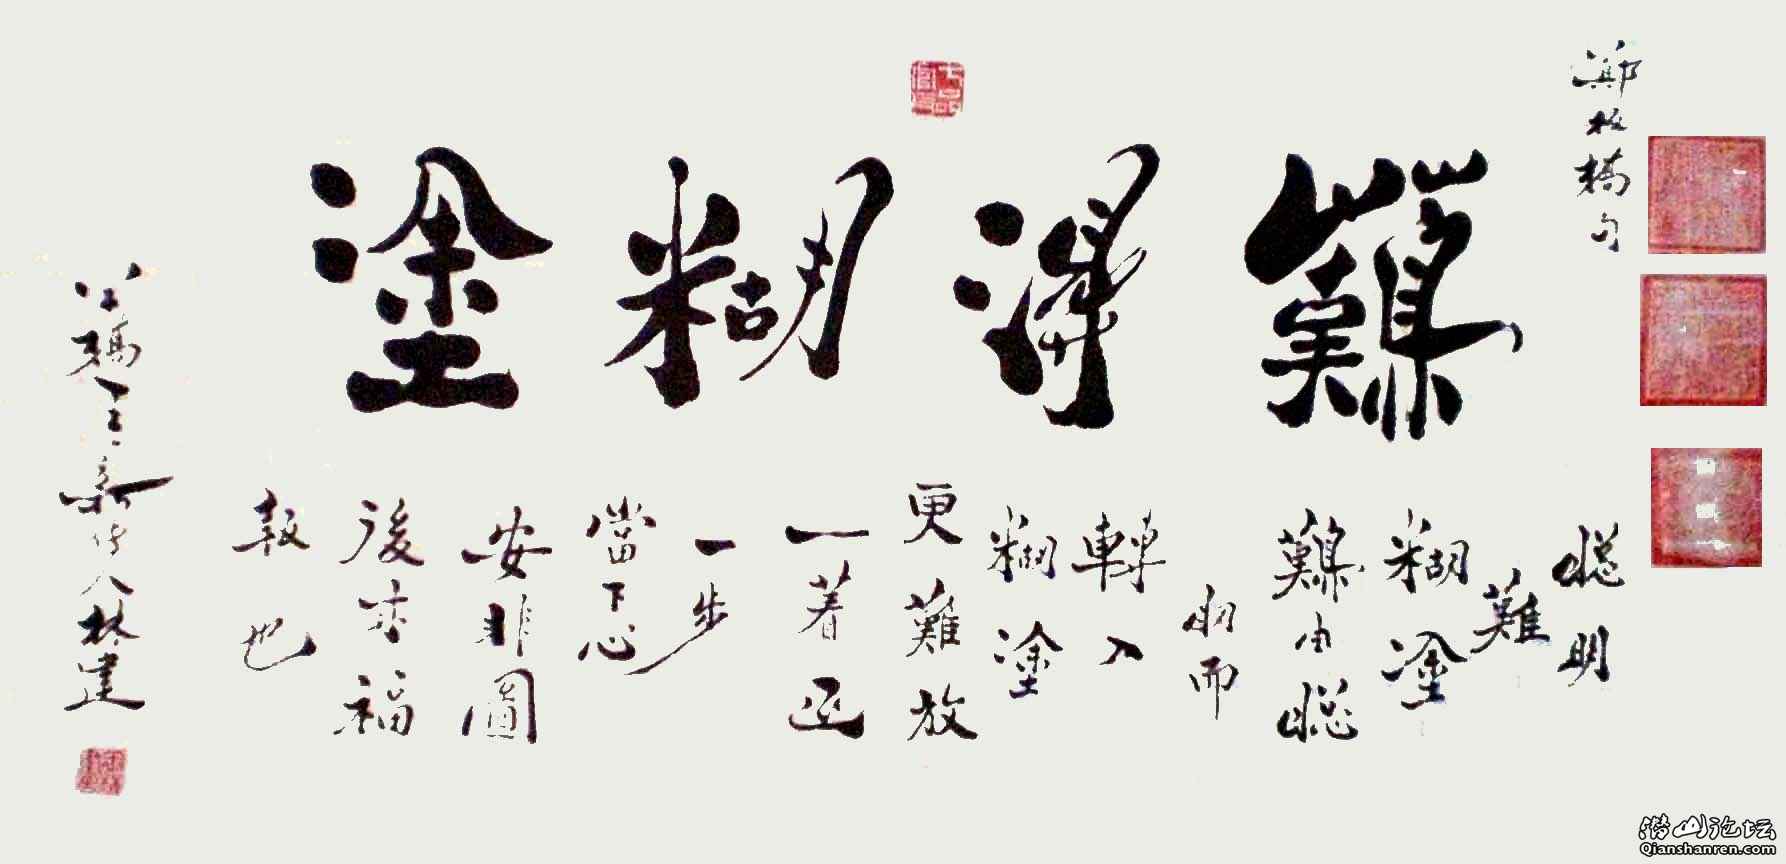 鄭板橋句
難得糊塗
聰明
難
糊塗
難由聰
明而
轉入
糊塗
更難放
一著退
一步
當下心
安非圖
後來福
報也
林建
潜山论坛
Qianshanren.com